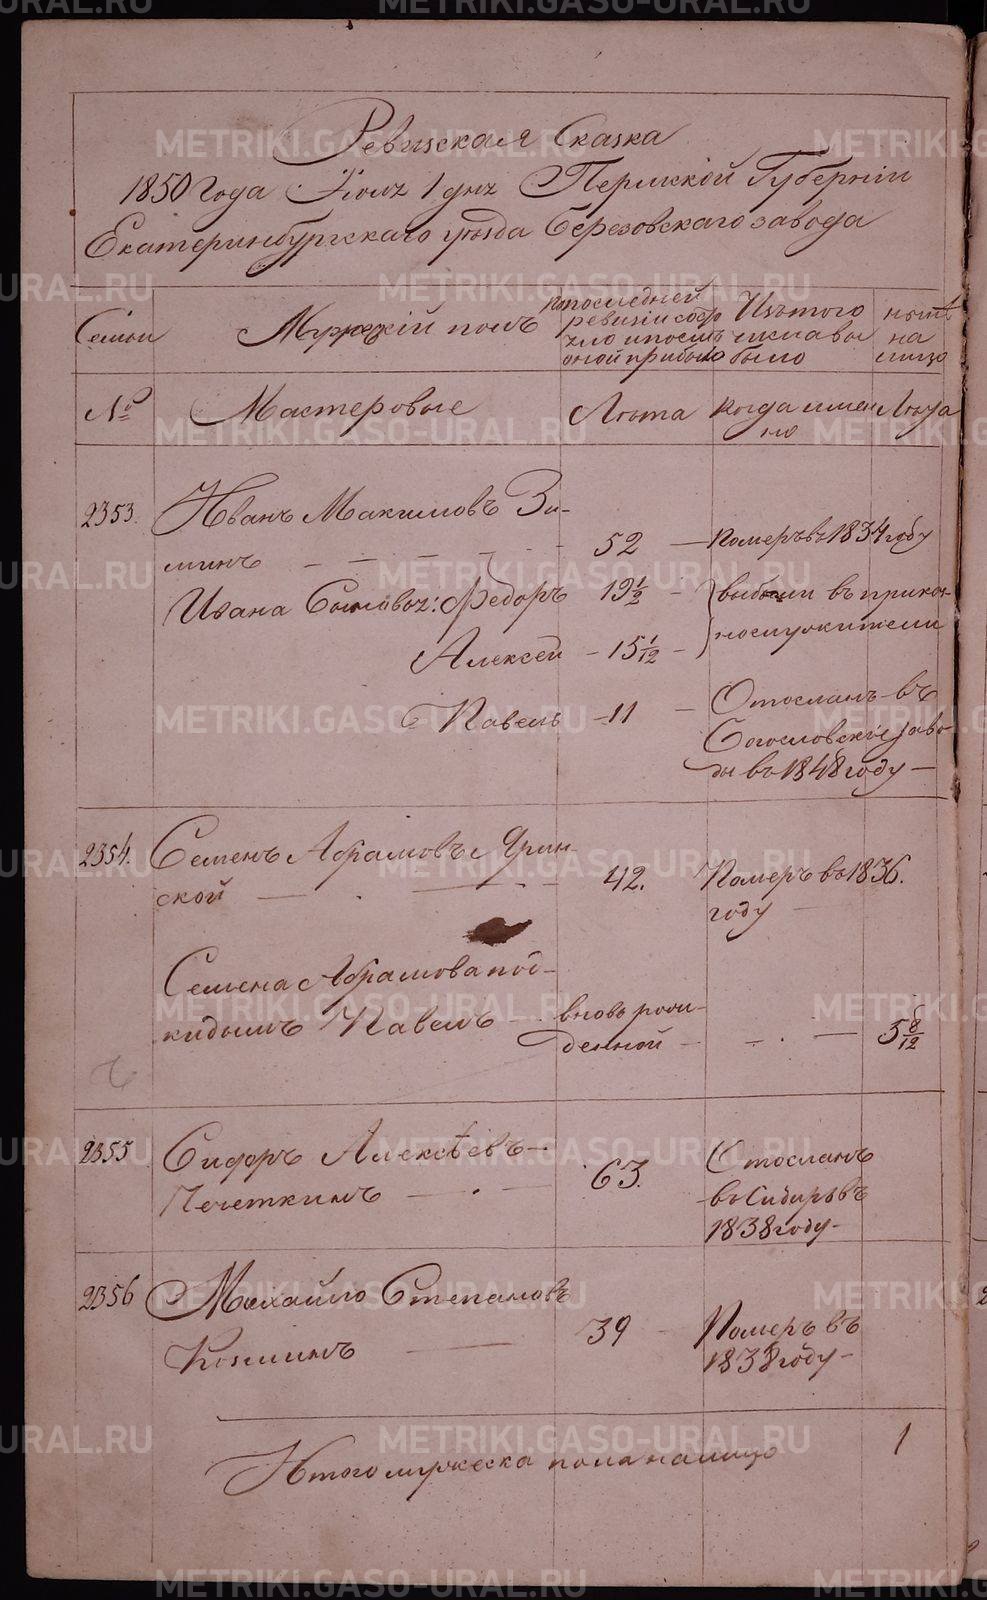 Ревизская Сказка
1850 Года Июня 1 дня Пермской Губерніи
Екатеринбургскаго уѣзда Березовскаго завода
Семьи
Мужескій полъ
по последней
ревизіи состо
яло и послѣ
оной прибыло
Изътого
числа вы
было
нынѣ
на
лицо
№
Мастеровые
Лѣта
когда имен
но
Лѣта
2353.
Иванъ Максимовъ Зи-
минъ
52
Померъ въ 1834 году
Ивана Сыновья: Федоръ
19 1/2
выбыли въ прика-
Алексей
15 1/12
нослужители
Павелъ
11
Отосланъ въ
Богословскіе заво-
ды въ 1848 году
2354.
Семенъ Абрамовъ Ярин-
ской
42.
Померъ въ 1836.
году
Семена Абрамова под-
кидышъ Павелъ
вновь рож-
денной
5 8/12
2355
Сидоръ Алексѣевъ
Печеткинъ
63.
Отосланъ
въ Сибирь въ
1838 году
2356
Михайло Степановъ
Козминъ
39
Померъ въ
1838 году
Итого мужеска пола на лицо
1
METRIKI.GASO-URAL.RU